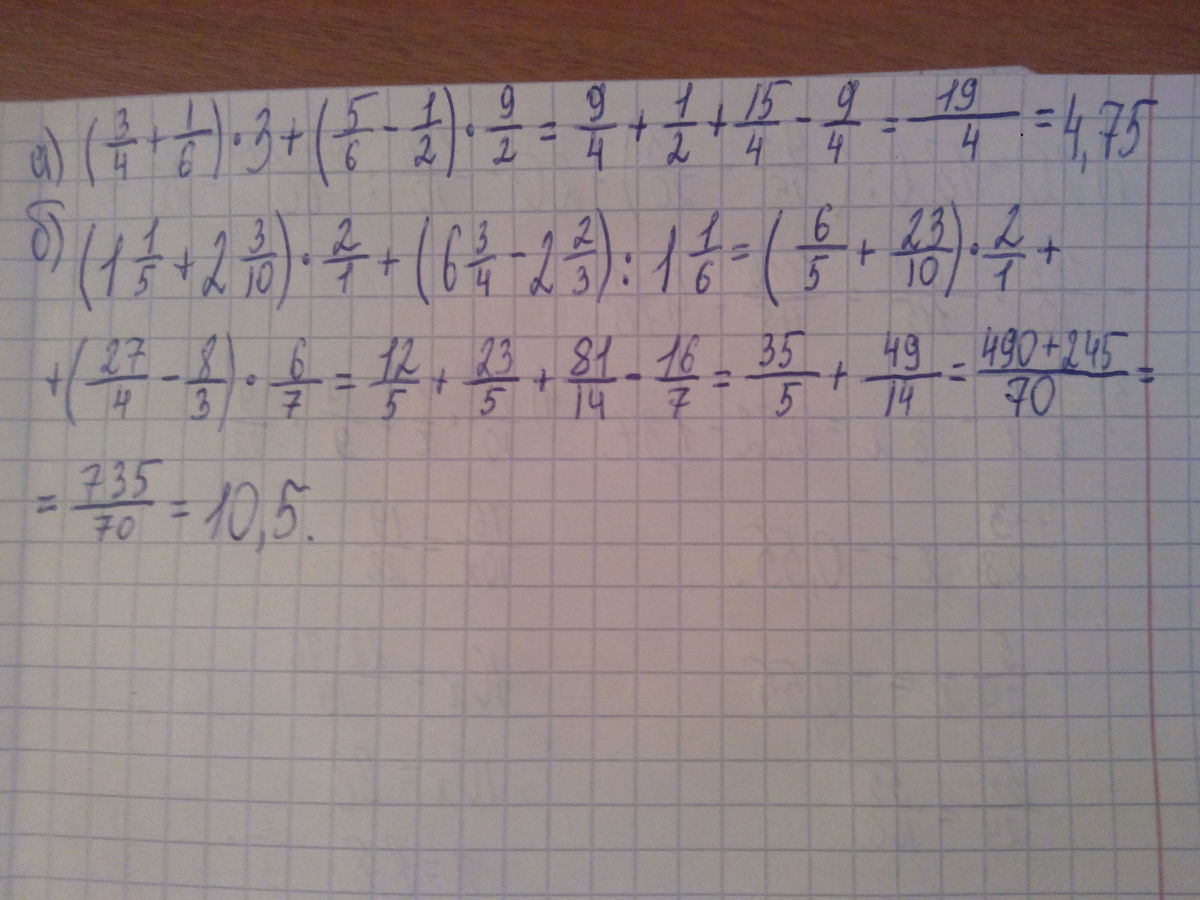 а) (3/4 + 1/6) · 3 + (5/6 - 1/2) · 9/2 = 9/4 + 1/2 + 15/4 - 9/4 = 19/4 = 4,75
б) (1 1/5 + 2 3/10) · 2/1 + (6 3/4 - 2 2/3) : 1 1/6 = (6/5 + 23/10) · 2/1 +
+ (27/4 - 8/3) · 6/7 = 12/5 + 23/5 + 81/14 - 16/7 = 35/5 + 49/14 = 490+245/70 =
= 735/70 = 10,5.